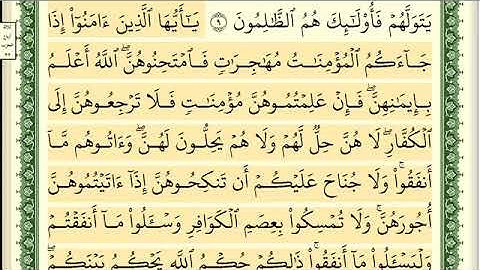 يَتَوَلَّهُمْ فَأُو۟لَـٰٓئِكَ هُمُ ٱلظَّـٰلِمُونَ ٩ يَـٰٓأَيُّهَا ٱلَّذِينَ ءَامَنُوٓا۟ إِذَا
جَآءَكُمُ ٱلْمُؤْمِنَـٰتُ مُهَـٰجِرَٰتٍ فَٱمْتَحِنُوهُنَّ ۖ ٱللَّهُ أَعْلَمُ
بِإِيمَـٰنِهِنَّ ۖ فَإِنْ عَلِمْتُمُوهُنَّ مُؤْمِنَـٰتٍ فَلَا تَرْجِعُوهُنَّ إِلَى
ٱلْكُفَّارِ ۖ لَا هُنَّ حِلٌّ لَّهُمْ وَلَا هُمْ يَحِلُّونَ لَهُنَّ ۖ وَءَاتُوهُم مَّآ
أَنفَقُوا۟ ۚ وَلَا جُنَاحَ عَلَيْكُمْ أَن تَنكِحُوهُنَّ إِذَآ ءَاتَيْتُمُوهُنَّ
أُجُورَهُنَّ ۚ وَلَا تُمْسِكُوا۟ بِعِصَمِ ٱلْكَوَافِرِ وَسْـَٔلُوا۟ مَآ أَنفَقْتُمْ
وَلْيَسْـَٔلُوا۟ مَآ أَنفَقُوا۟ ۚ ذَٰلِكُمْ حُكْمُ ٱللَّهِ يَحْكُمُ بَيْنَكُمْ ۚ